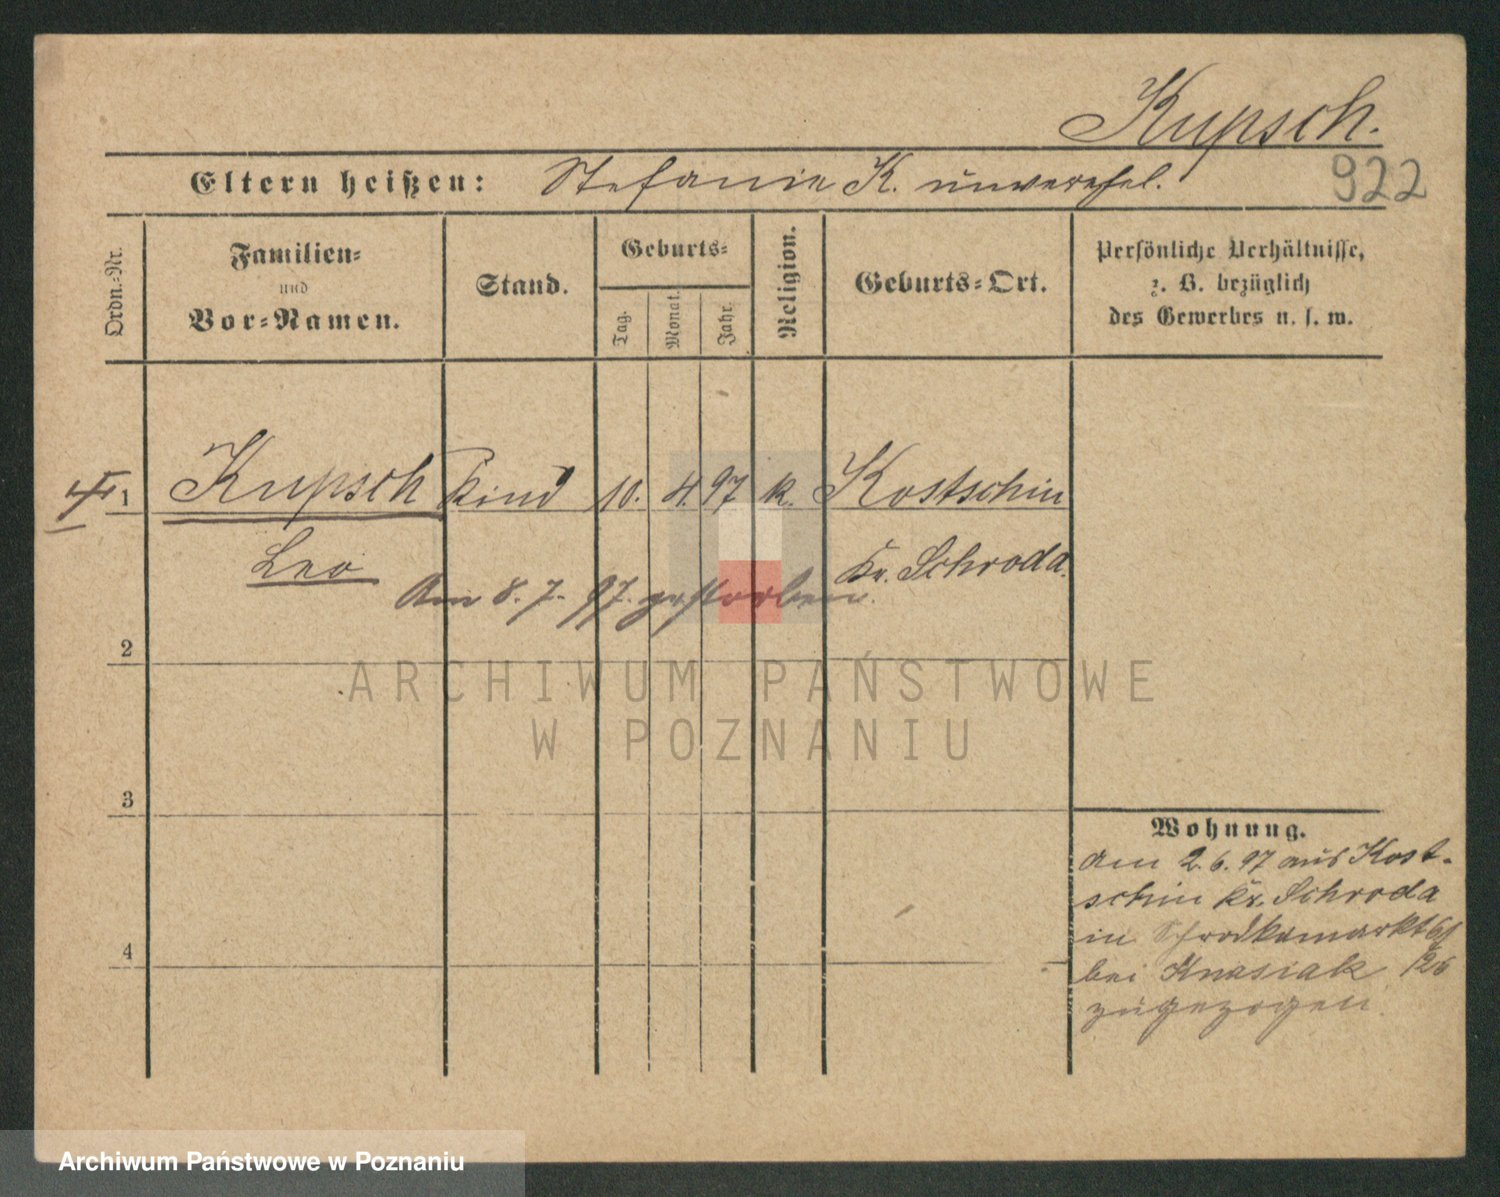 Kupsch.
922
Eltern heißen: Stefanie K. unverehel.
Ordn.-Nr.
Familien-
und
Vor-Namen.
Stand.
Geburts-
Tag.
Monat.
Jahr.
Religion.
Geburts-Ort.
Persönliche Verhältnisse,
z. B. bezüglich
des Gewerbes u. s. w.
1 Kupsch Kind 10. 4. 97 k. Kostschin
Leo
Kr. Schroda.
Am 8. 7. 97. gestorben.
2
3
4
Wohnung.
Am 2. 6. 97 aus Kost-
schin Kr. Schroda
in Schrodkamarkt
bei Knasiak
zugezogen.
ARCHIWUM PAŃSTWOWE
W POZNANIU
Archiwum Państwowe w Poznaniu